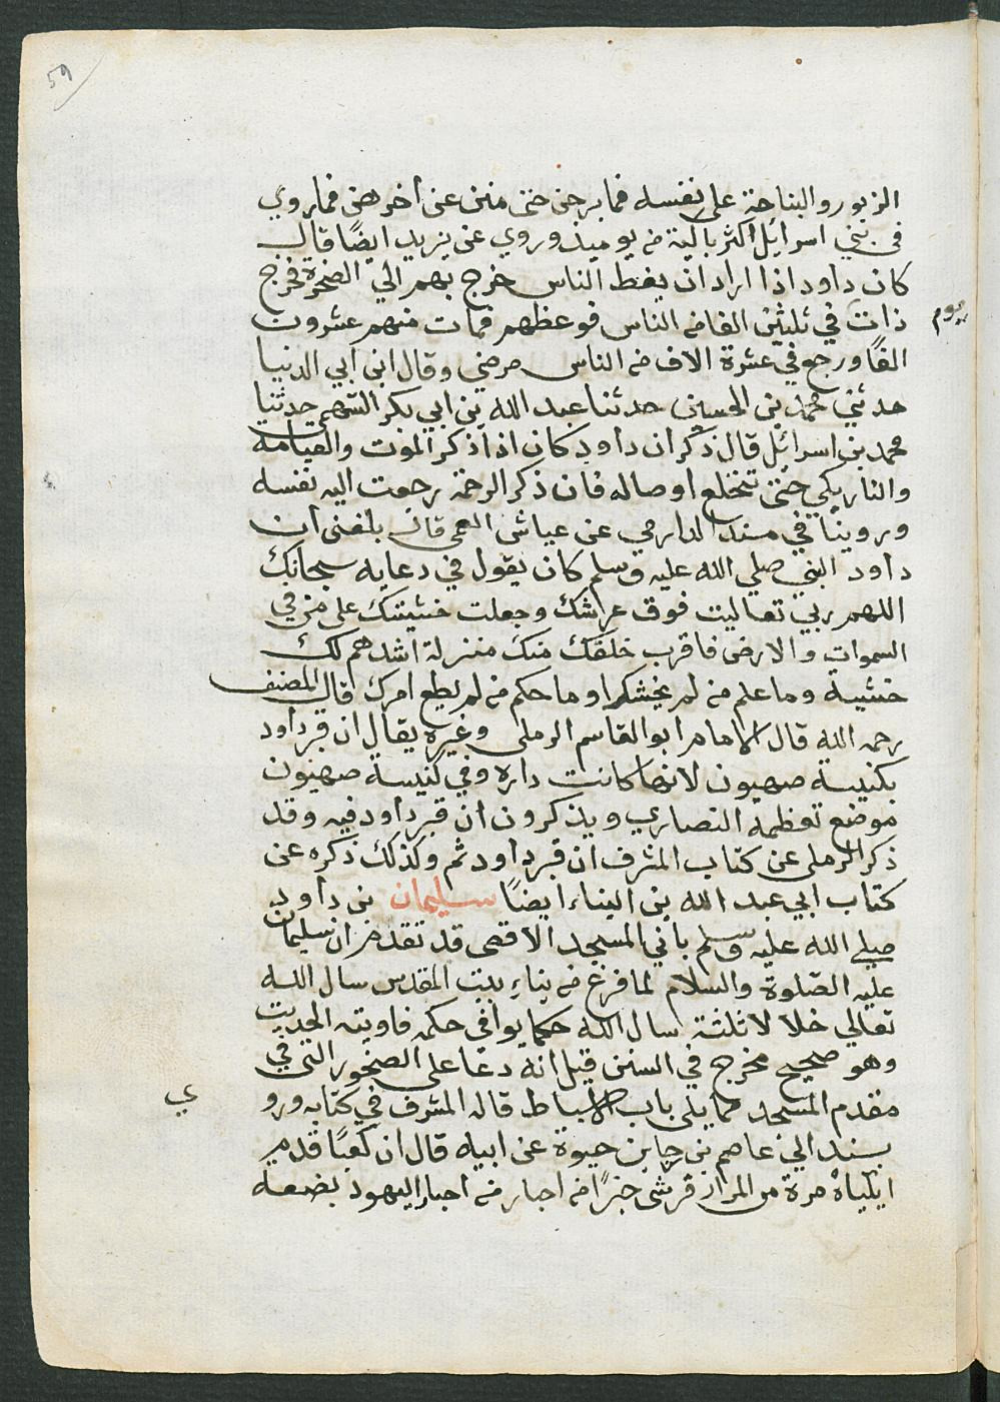 59
الزبور والنياحة على نفسه فما برحن حتى متن عن اخرهن فما روي
في بني اسرائيل اكثر باكية من يوميذ وروي عن يزيد ايضًا قال
كان داود اذا اراد ان يعظ الناس خرج بهم الي الصخرة فخرج
ذات يوم في ثلثين الفا من الناس فوعظهم فمات منهم عشرون
الفًا ورجع في عشرة الاف من الناس مرضي وقال ابن ابي الدنيا
حدثني محمد بن الحسين حدثنا عبد الله بن ابي بكر السهمي حدثنا
محمد بن اسرائيل قال ذكر ان داود كان اذا ذكر الموت والقيامة
والنار بكي حتى تتخلع اوصاله فان ذكر الرحمة رجعت اليه نفسه
وروينا في مسند الدارمي عن عباش العمي قال بلغني ان
داود النبي صلي الله عليه وسلم كان يقول في دعايه سبحانك
اللهم ربي تعاليت فوق عرشك وجعلت خشيتك على من في
السموات والارض فاقرب خلقك منك منزلة اشدهم لك
خشية وما علم من لم يخشك او ما حكم من لم يطع امرك قال المصنف
رحمه الله قال الامام ابو القاسم الرملي وغيره يقال ان قبر داود
بكنيسة صهيون لانها كانت داره وفي كنيسة صهيون
موضع تعظمه النصاري ويذكرون ان قبر داود فيه وقد
ذكر الرملي عن كتاب المشرف ان قبر داود ثم وكذلك ذكره عن
كتاب ابي عبد الله بن البناء ايضًا سليمان بن داود
صلي الله عليه وسلم باني المسجد الاقصى قد تقدم ان سليمان
عليه الصلوة والسلام لما فرغ من بناء بيت المقدس سال الله
تعالي خلالا ثلثة سال الله حكما يوافي حكمه فاوتيه الحديث
وهو صحيح مخرج في السنن قيل انه دعا على الصخور التى في
مقدم المسجد مما يلى باب الاسباط قاله المشرف في كتابه ورو
ي
بسند الي عاصم بن رجا بن حيوة عن ابيه قال ان كعبًا قدم
ايلياء مرة من المرار فرشى حبرًا من احبار من احبار اليهود بضعة